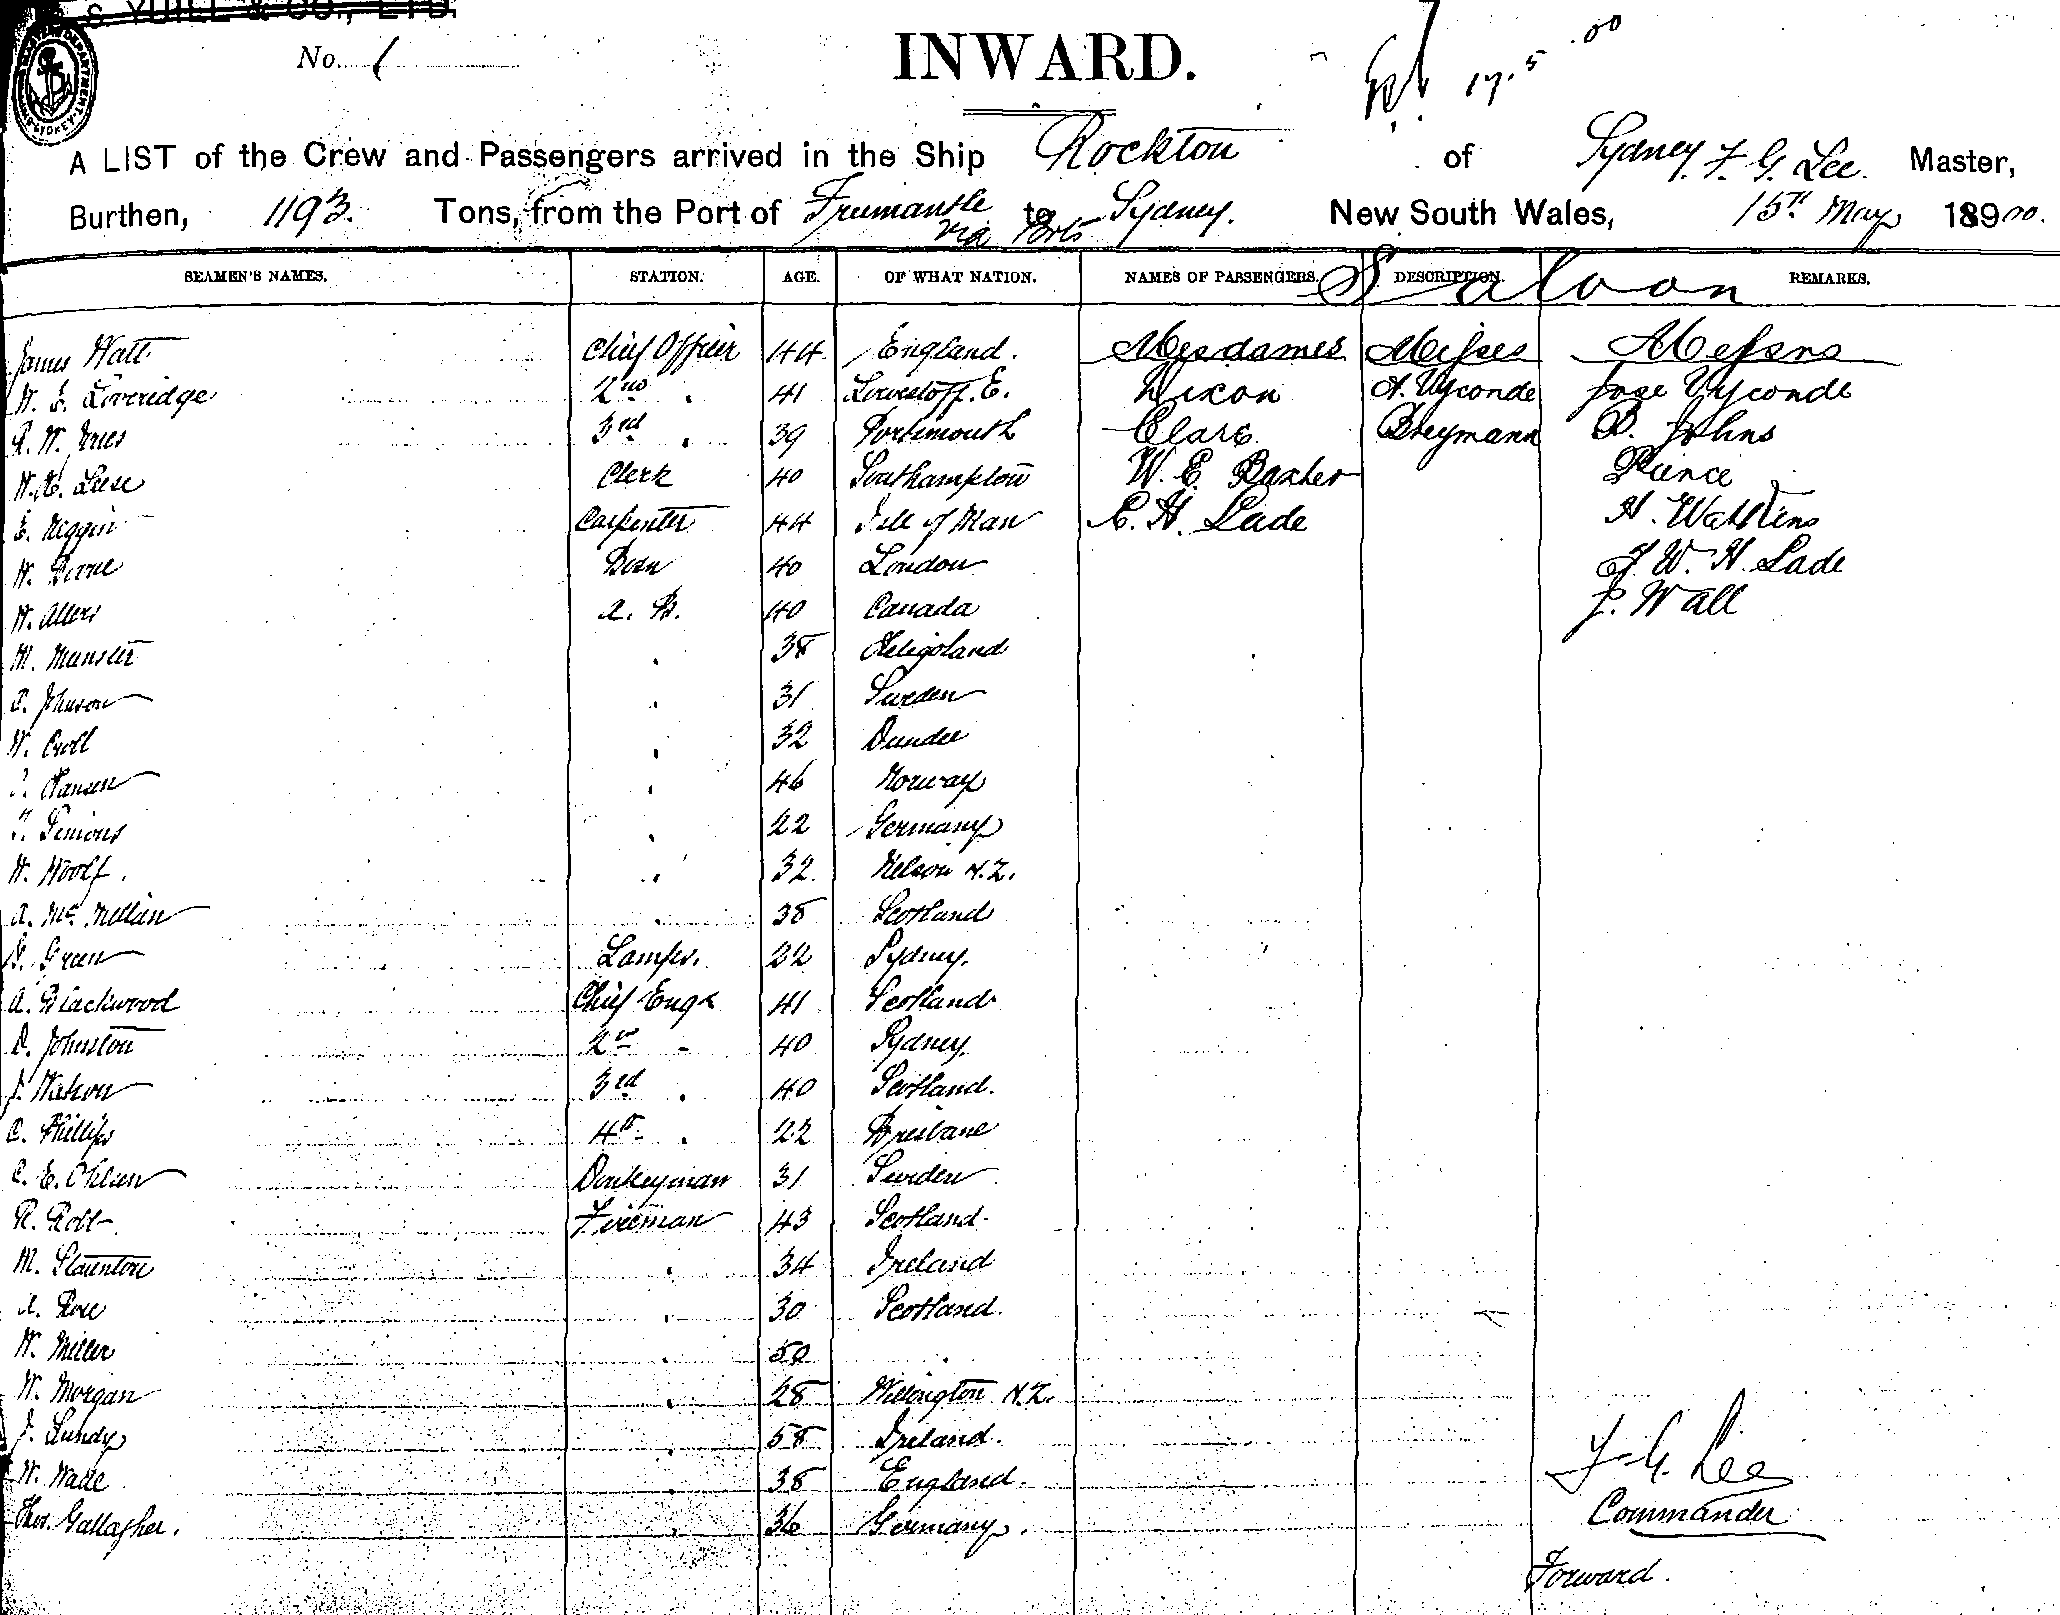 S. YUILL & CO., LTD.
No. 1
INWARD.
17.5.00
A LIST of the Crew and Passengers arrived in the Ship Rockton of Sydney, F. G. Lee Master,
Burthen, 1193 Tons, from the Port of Fremantle via Ports to Sydney. New South Wales, 15th May 1900.
SEAMEN'S NAMES. STATION. AGE. OF WHAT NATION. NAMES OF PASSENGERS. DESCRIPTION. REMARKS.
Saloon
James Watt Chief Officer 44 England. Mesdames Misses Messrs
W. J. Loveridge 2nd " 41 Lowestoff. E. Dixon A. Vyconde Jose Vyconde
R. W. 3rd " 39 Portsmouth Clare Breymann B. Johns
W. H. Leese Clerk 40 Southampton W. E. Baxter Peirce
Carpenter 44 Isle of Man C. H. Lade H. Watkins
W. Bosn 40 London F. W. H. Lade
W. Allers A. B. 40 Canada J. Wall
M. Munster " 38 Heligoland
Johnson " 31 Sweden
W. Croll " 32 Dundee
Hansen " 46 Norway
" 22 Germany
W. Woolf. " 32 Nelson N.Z.
A. McMillan " 38 Scotland
Green Lamps. 22 Sydney.
A. Blackwood Chief Engr 41 Scotland
D. Johnston 2nd " 40 Sydney
J. Watson 3rd " 40 Scotland.
C. Phillips 4th " 22 Brisbane
C. E. Ohlsen Donkeyman 31 Sweden
R. Robb Fireman 43 Scotland.
M. Staunton " 34 Ireland
A. " 30 Scotland.
W. Miller " 50 "
W. Morgan " 28 Wellington N.Z.
J. Lundy " 58 Ireland.
W. Wade " 38 England.
Thos. Gallagher. " 36 Germany.
F. G. Lee
Commander
Forward.